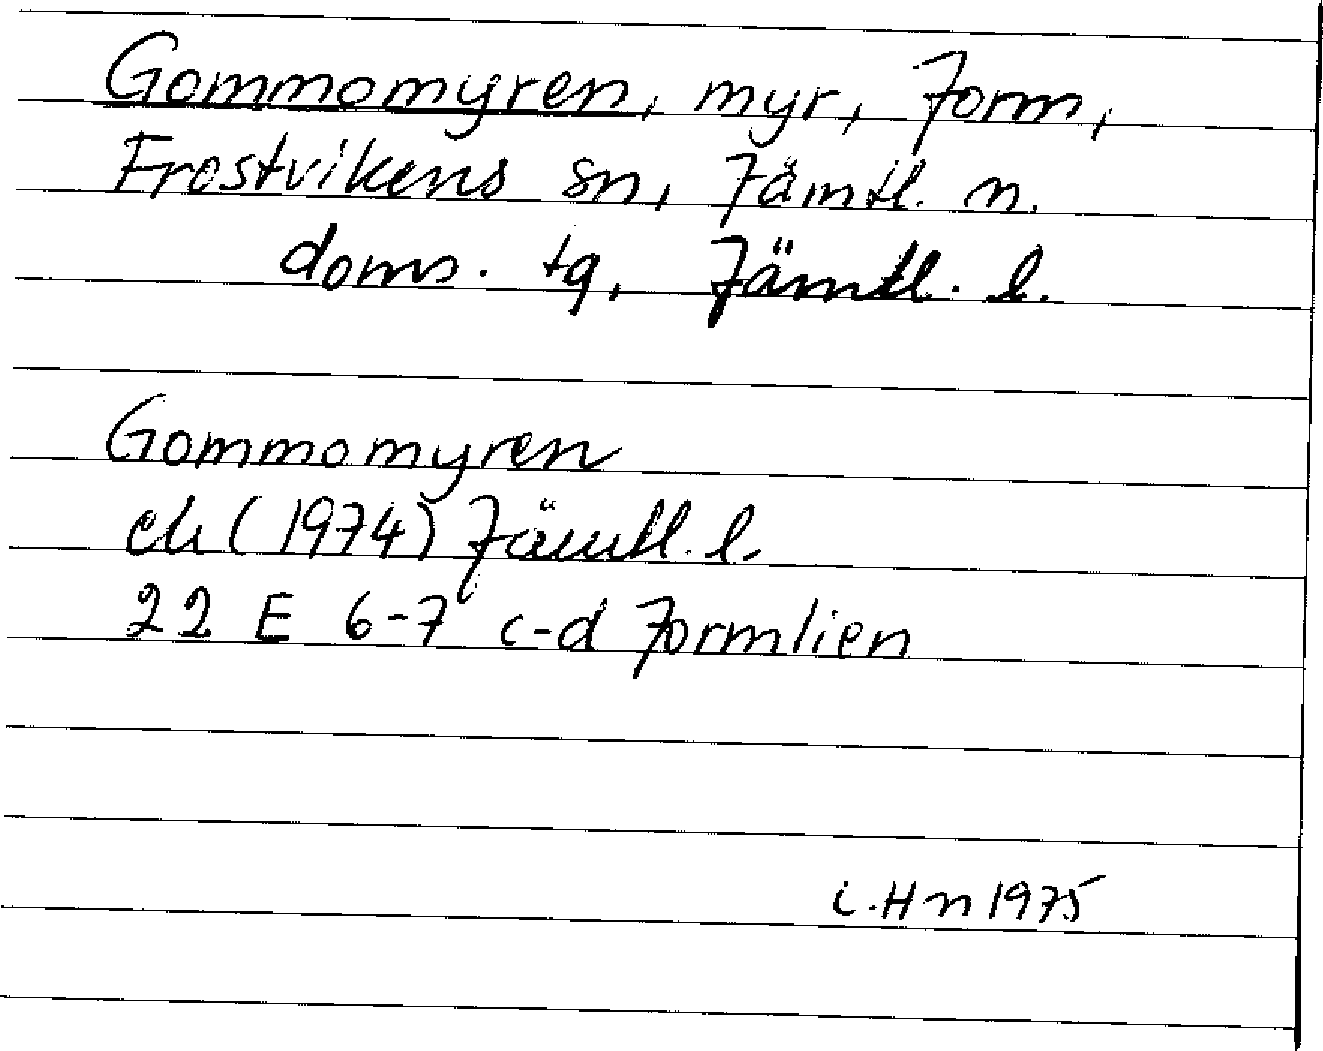 Gommomyren, myr, Jorm,
Frostvikens sn, Jämtl. n.
doms. tg, Jämtl. l.
Gommomyren
ek (1974) Jämtl. l.
22 E 6-7 c-d Jormlien
C. Hn 1975